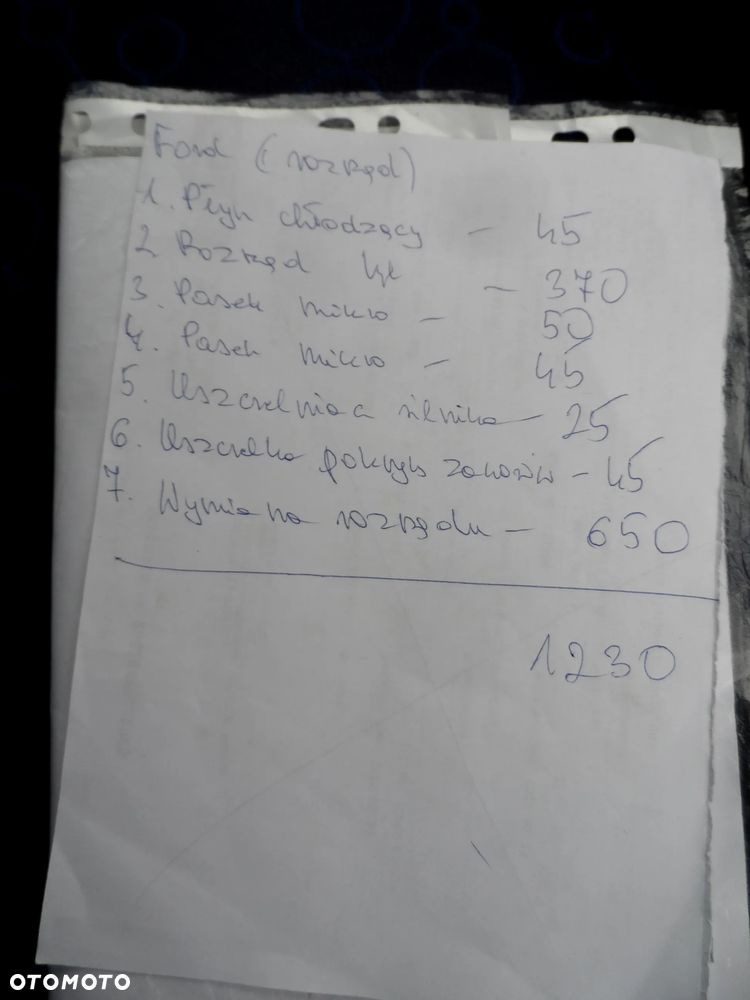 Ford (rozrząd)
1. Płyn chłodzący - 45
2 Rozrząd kpl - 370
3. Pasek mikro - 50
4. Pasek mikro - 45
5. Uszczelniacz silnika - 25
6. Uszczelka pokryw zaworów - 45
7. Wymiana rozrządu - 650
1230
OTOMOTO